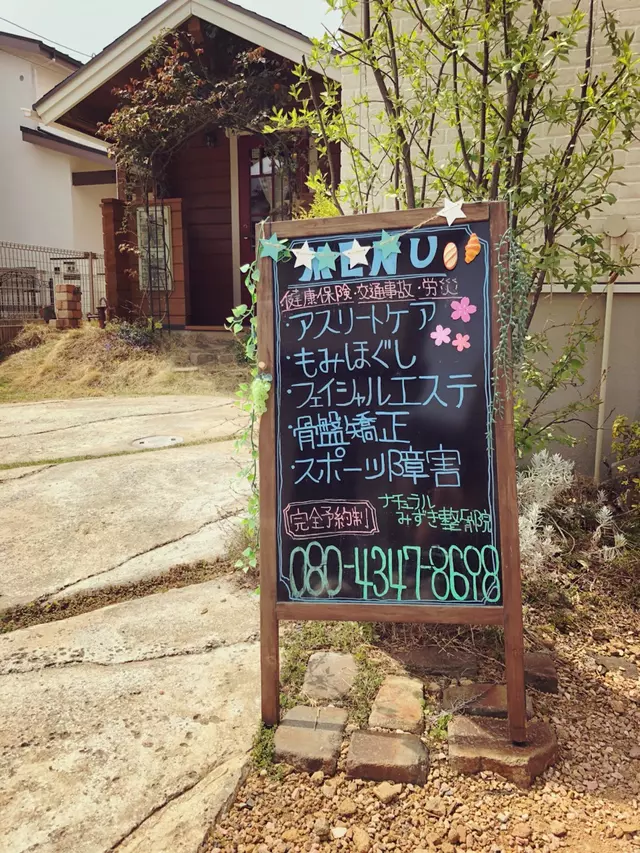 MENU
健康保険・交通事故・労災
・アスリートケア
・もみほぐし
・フェイシャルエステ
・骨盤矯正
・スポーツ障害
完全予約制
ナチュラル
みずき整骨院
080-4347-8698